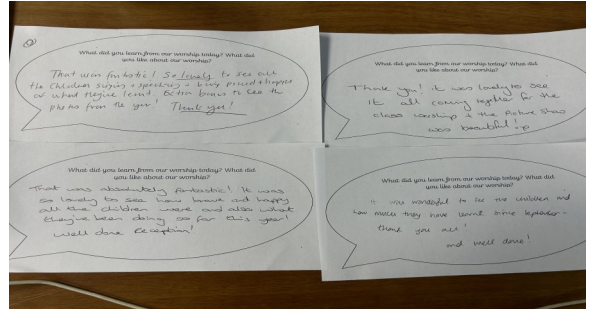 What did you learn from our worship today? What did
you like about our worship?
That was fantastic! So lovely to see all
the children singing + speaking + being proud + happy
of what they've learnt. Extra bonus to see the
photos from the year! Thank you!
What did you learn from our worship today? What did
you like about our worship?
Thank you! it was lovely to see
it all coming together for the
class worship + the picture show
was beautiful!
What did you learn from our worship today? What did
you like about our worship?
That was absolutely fantastic! It was
so lovely to see how brave and happy
all the children were and also what
they've been doing so far this year!
Well done Reception!
What did you learn from our worship today? What did
you like about our worship?
It was wonderful to see the children and
how much they have learnt since September -
thank you all!
and well done!